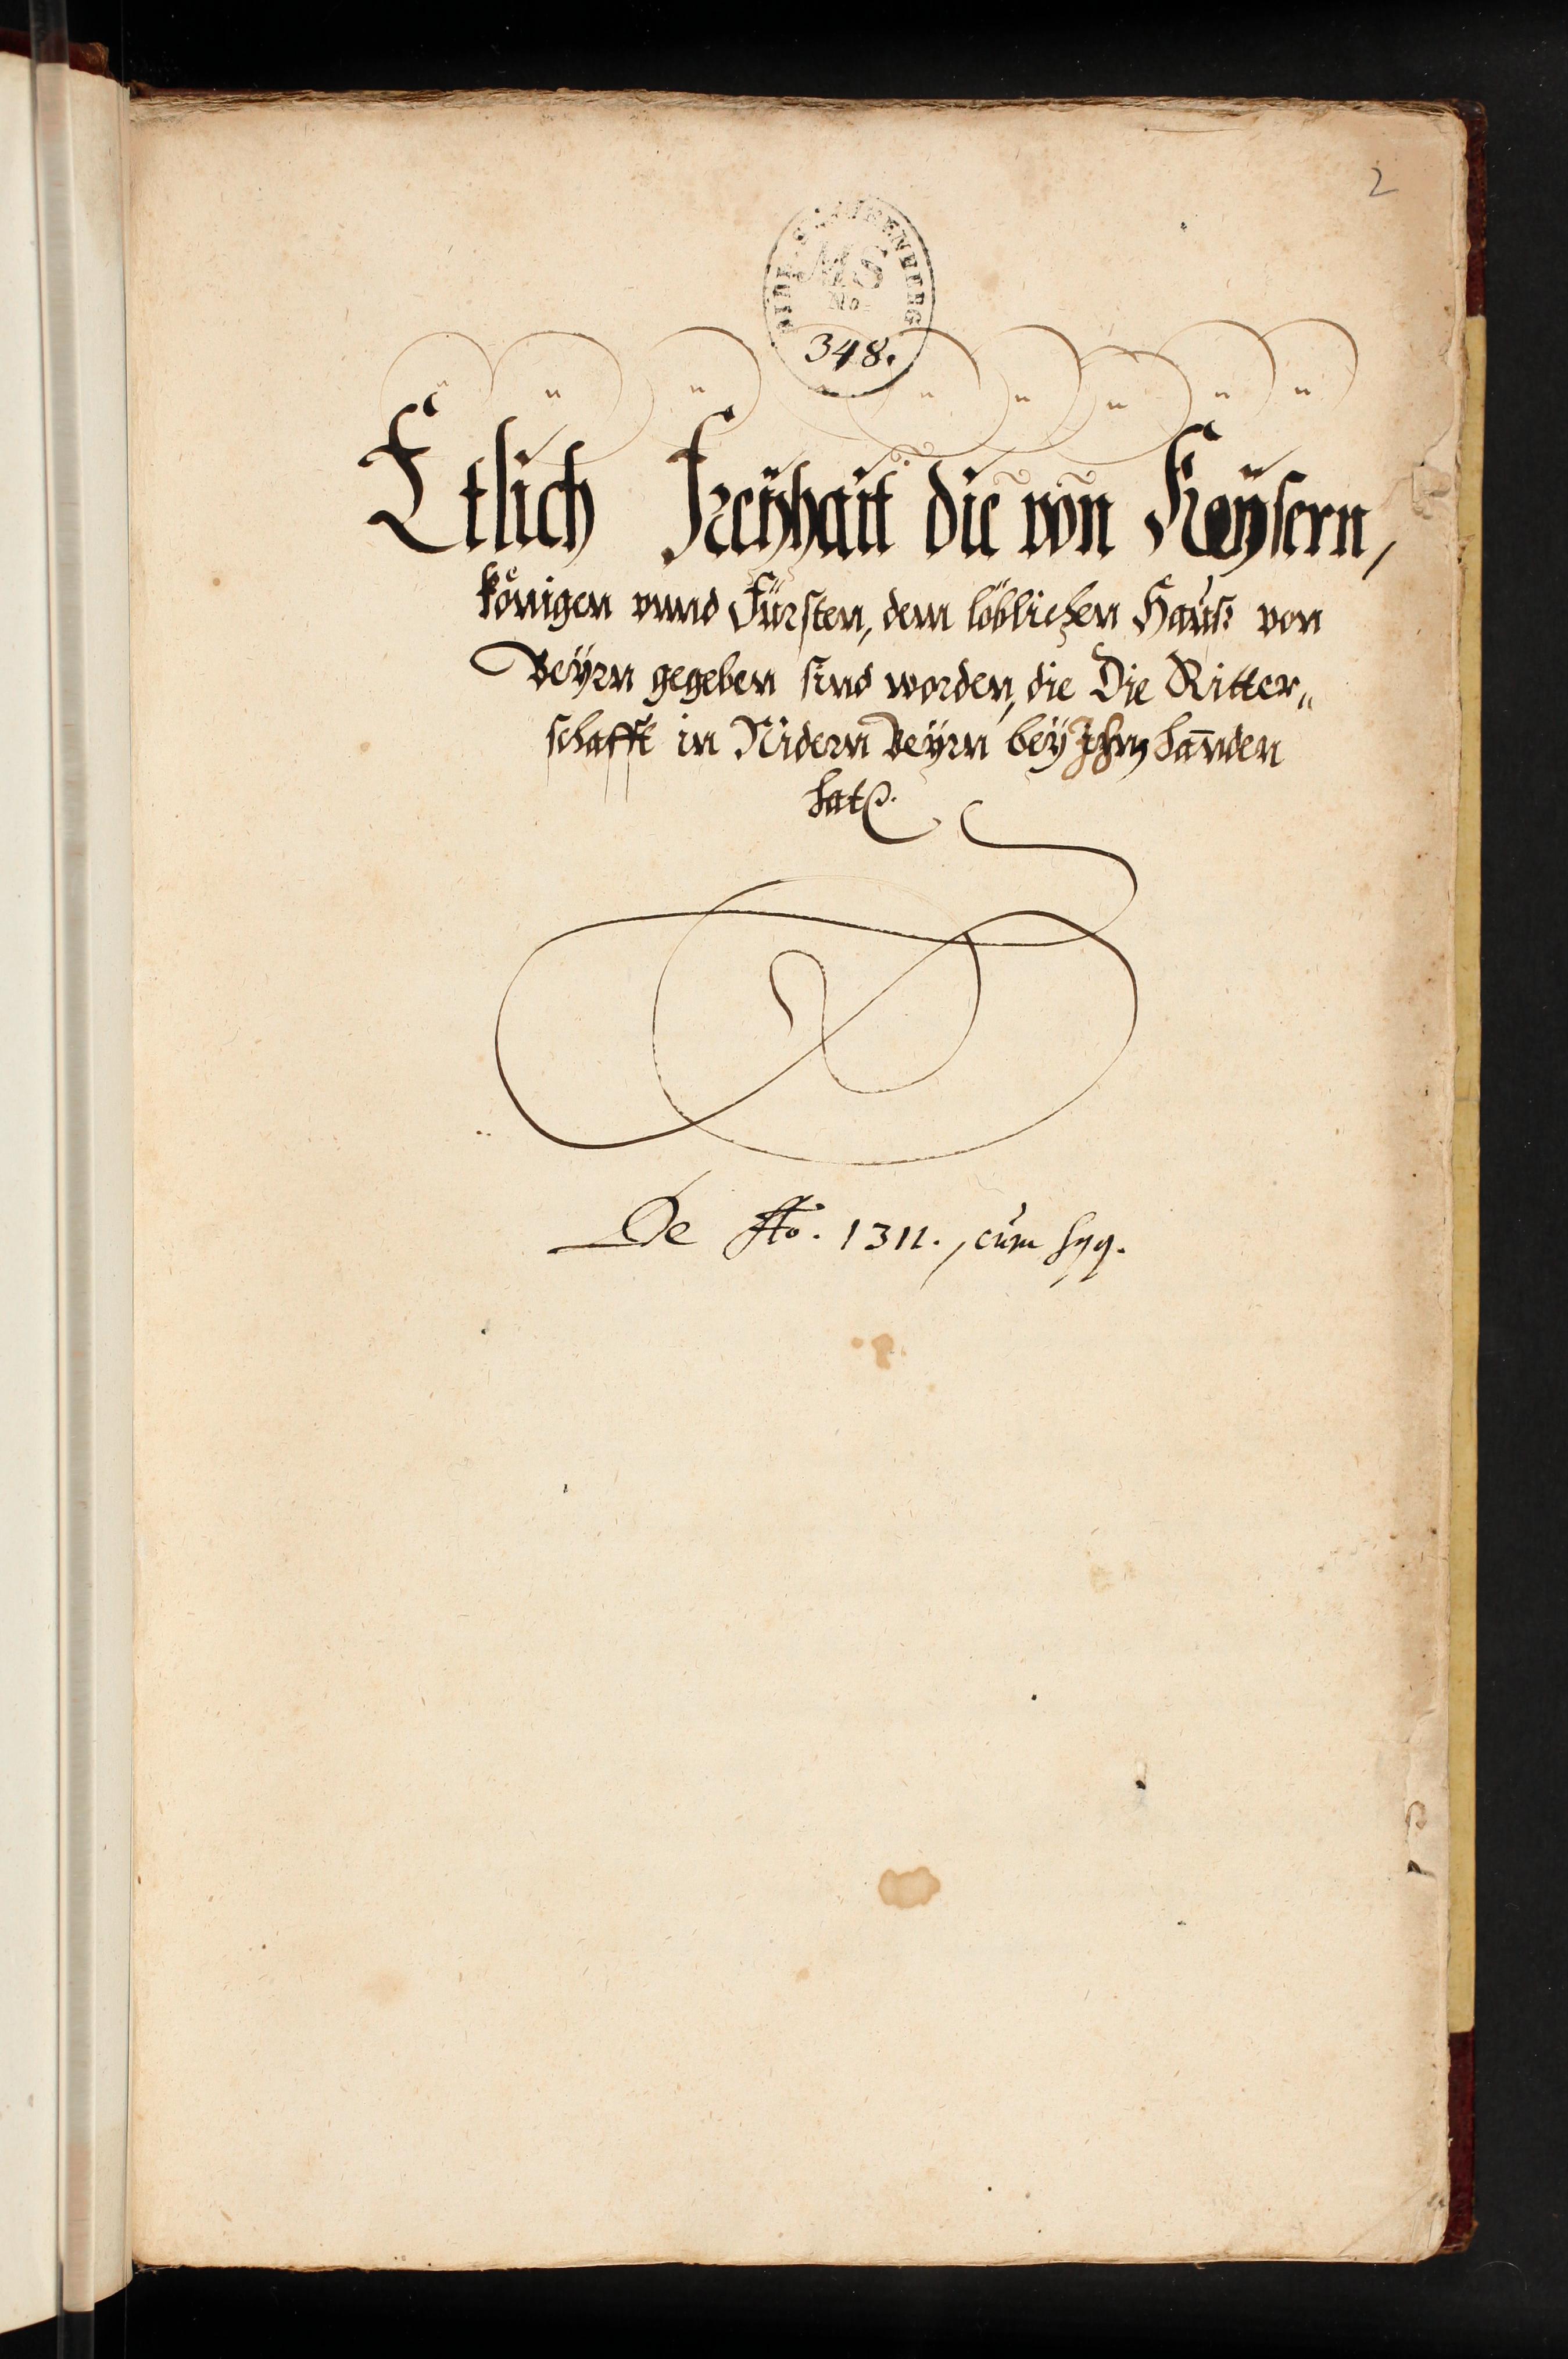 2
BIBL. STAUFENBERG
MS
No.
348.
Etlich Freÿhait die von Keÿsern,
königen vnnd Fürsten, dem löblichen Hauß von
Beÿrn gegeben sind worden, die Die Ritter„
schafft in Nidern Beÿrn beÿ Jhrn handen
hat.
De Ao. 1311., cum sqq.